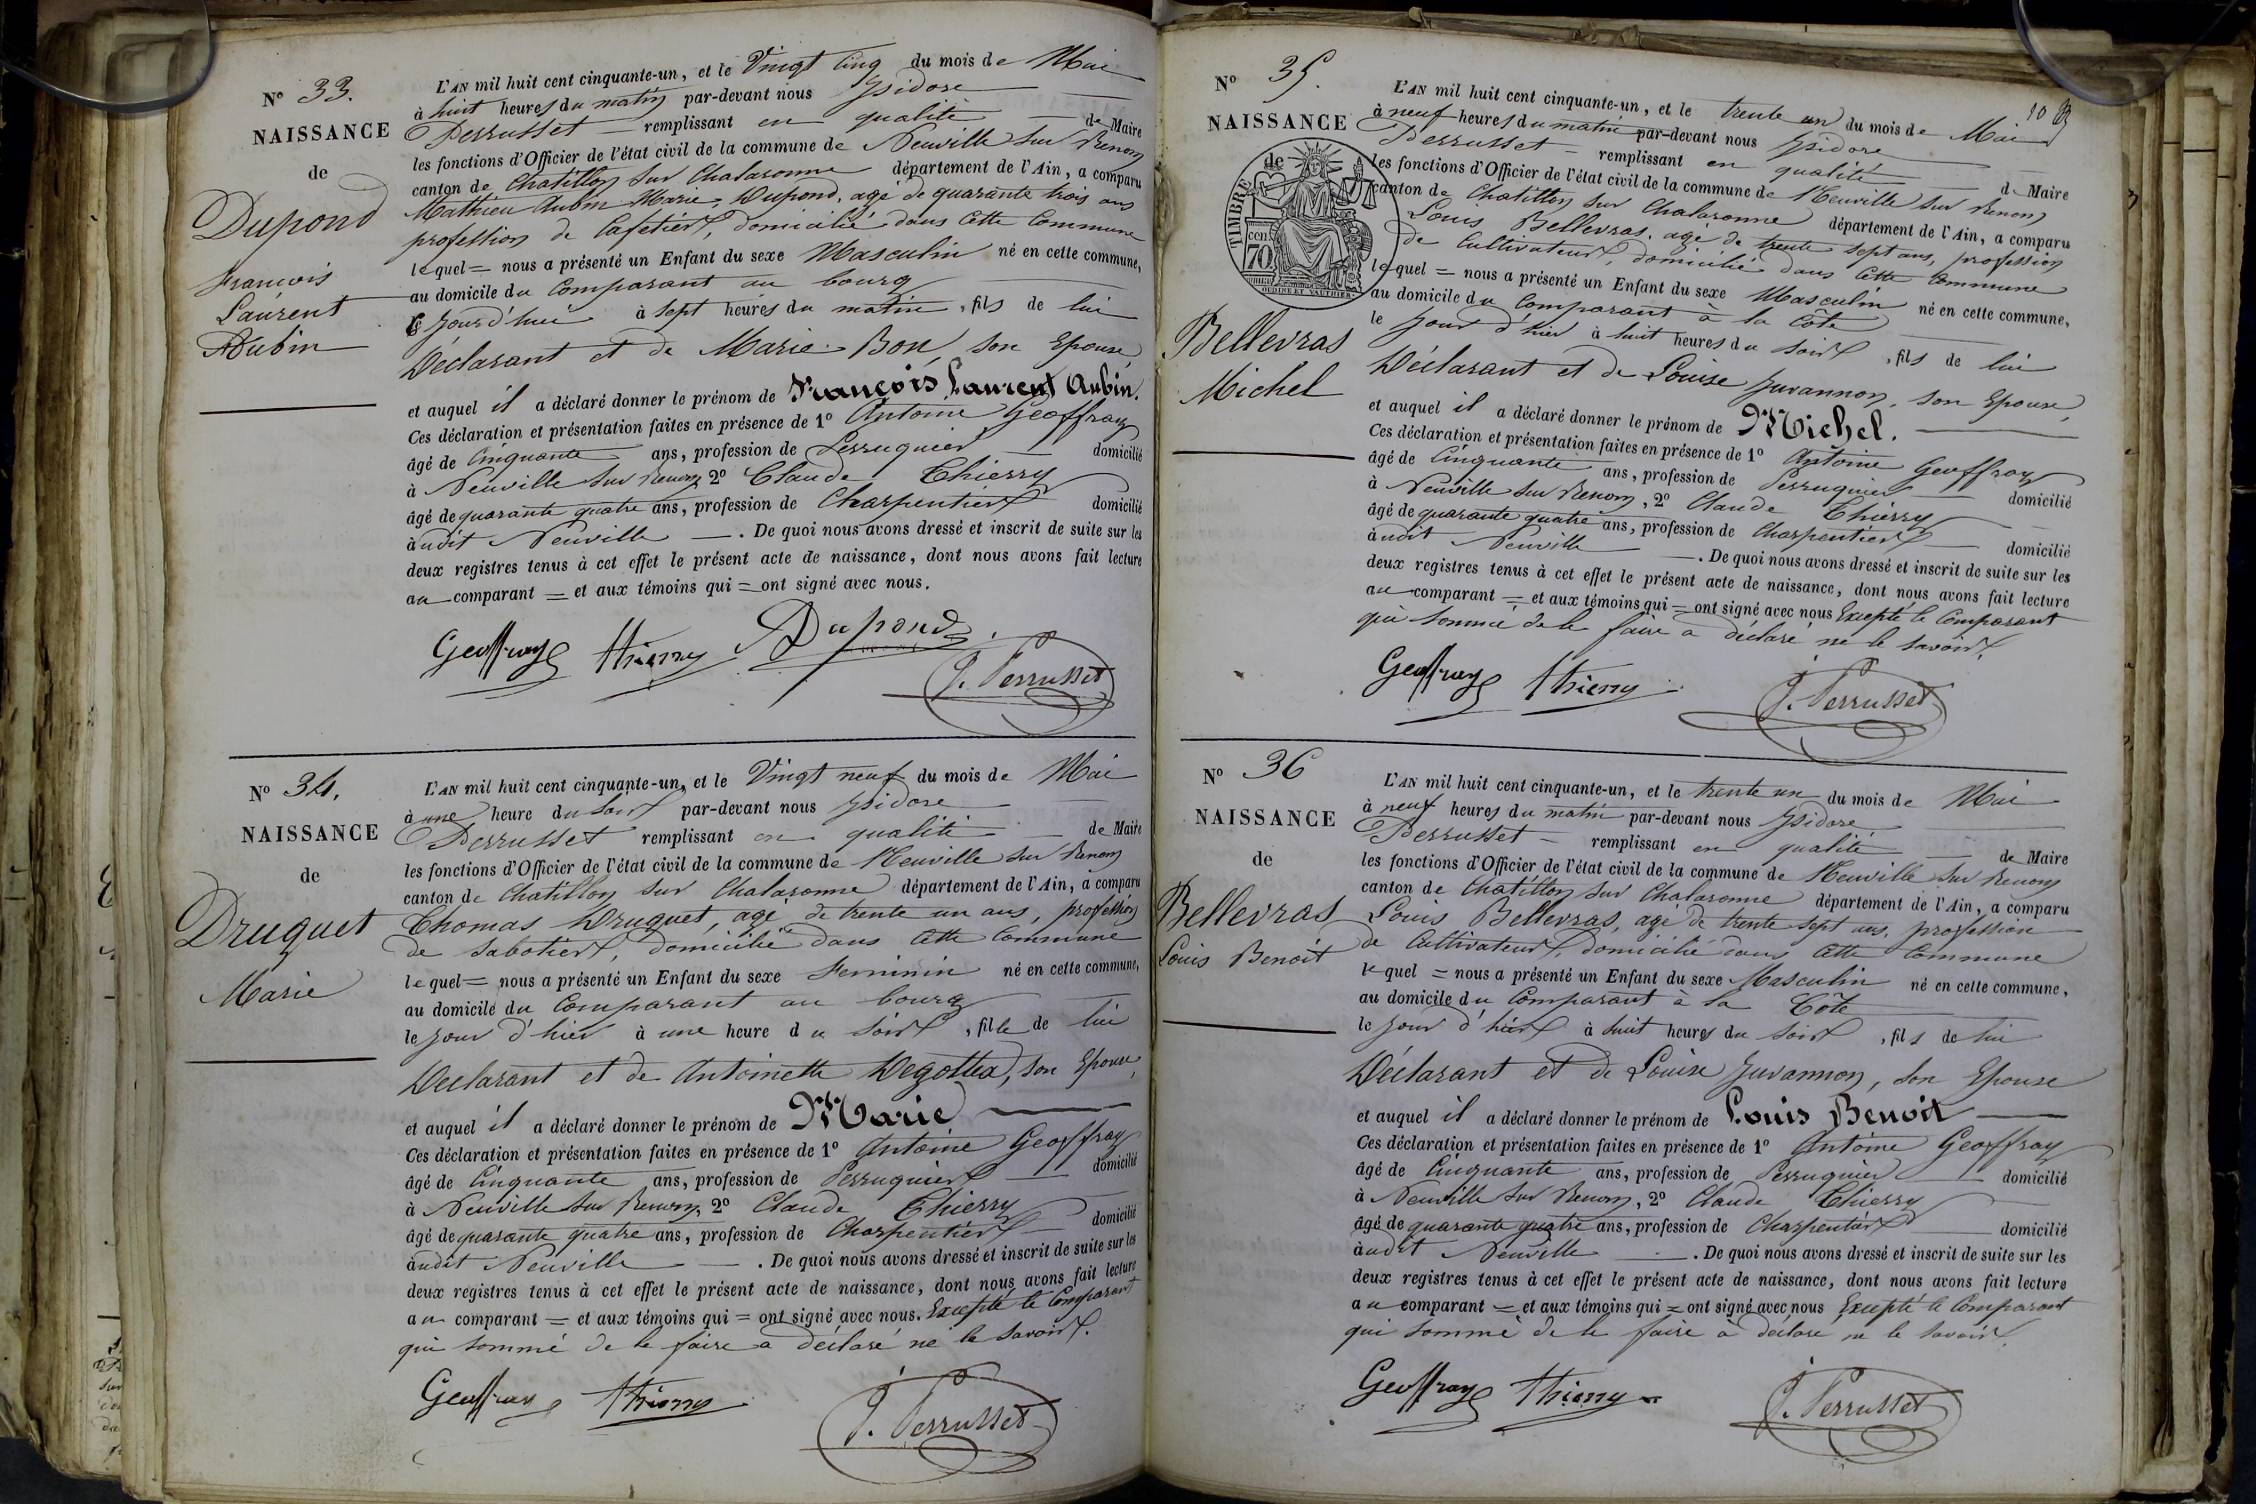 N° 33.
NAISSANCE
de
Dupond
François
Laurent
Aubin
L'AN mil huit cent cinquante-un, et le Vingt Cinq du mois de Mai
à huit heures du matin par-devant nous Ysidore
Perrusset remplissant en qualité de Maire
les fonctions d'Officier de l'état civil de la commune de Neuville sur Renom
canton de Chatillon sur Chalaronne département de l'Ain, a comparu
Mathieu Aubin Marie Dupond, agé de quarante trois ans
profession de Cafetier, domicilié dans cette Commune
lequel = nous a présenté un Enfant du sexe Masculin né en cette commune,
au domicile du Comparant au bourg
le jourd'hui à sept heures du matin, fils de lui
Déclarant et de Marie Bon, son Epouse
et auquel il a déclaré donner le prénom de François Laurent Aubin.
Ces déclaration et présentation faites en présence de 1° Antoine Geoffray
âgé de Cinquante ans, profession de Perruquier domicilié
à Neuville sur Renom, 2° Claude Thierry
âgé de quarante quatre ans, profession de Charpentier domicilié
àudit Neuville. De quoi nous avons dressé et inscrit de suite sur les
deux registres tenus à cet effet le présent acte de naissance, dont nous avons fait lecture
au comparant = et aux témoins qui = ont signé avec nous.
Geoffray Thierry Dupond
J. Perrusset
N° 34.
NAISSANCE
de
Druguet
Marie
L'AN mil huit cent cinquante-un, et le Vingt neuf du mois de Mai
à une heure du soir par-devant nous Ysidore
Perrusset remplissant en qualité de Maire
les fonctions d'Officier de l'état civil de la commune de Neuville sur Renom
canton de Chatillon sur Chalaronne département de l'Ain, a comparu
Thomas Druguet, agé de trente un ans, profession
de sabotier, domicilié dans cette Commune
lequel = nous a présenté un Enfant du sexe Feminin né en cette commune,
au domicile du Comparant au bourg
le jour d'hier à une heure du soir, fille de lui
Declarant et de Antoinette Degottea, son Epouse,
et auquel il a déclaré donner le prénom de Marie
Ces déclaration et présentation faites en présence de 1° Antoine Geoffray
âgé de Cinquante ans, profession de Perruquier domicilié
à Neuville sur Renom, 2° Claude Thierry
âgé de quarante quatre ans, profession de Charpentier domicilié
àudit Neuville. De quoi nous avons dressé et inscrit de suite sur les
deux registres tenus à cet effet le présent acte de naissance, dont nous avons fait lecture
au comparant = et aux témoins qui = ont signé avec nous. Excepté le Comparant
qui sommé de le faire a déclaré ne le savoir.
Geoffray Thierry
J. Perrusset
10
N° 35.
NAISSANCE
de
TIMBRE
70 cen.
OUDINET VAUTHIER
Bellevras
Michel
L'AN mil huit cent cinquante-un, et le trente un du mois de Mai
à neuf heures du matin par-devant nous Ysidore
Perrusset remplissant en qualité de Maire
les fonctions d'Officier de l'état civil de la commune de Neuville sur Renom
canton de Chatillon sur Chalaronne département de l'Ain, a comparu
Louis Bellevras, agé de trente sept ans, profession
de Cultivateur, domicilié dans cette Commune
lequel = nous a présenté un Enfant du sexe Masculin né en cette commune,
au domicile du Comparant à la Côte
le jour d'hier à huit heures du soir, fils de lui
Déclarant et de Louise Juvannon, son Epouse,
et auquel il a déclaré donner le prénom de Michel.
Ces déclaration et présentation faites en présence de 1° Antoine Geoffray
âgé de Cinquante ans, profession de Perruquier domicilié
à Neuville sur Renom, 2° Claude Thierry
âgé de quarante quatre ans, profession de Charpentier domicilié
àudit Neuville. De quoi nous avons dressé et inscrit de suite sur les
deux registres tenus à cet effet le présent acte de naissance, dont nous avons fait lecture
au comparant = et aux témoins qui = ont signé avec nous Excepté le Comparant
qui sommé de le faire a déclaré ne le savoir.
Geoffray Thierry
J. Perrusset
N° 36
NAISSANCE
de
Bellevras
Louis Benoit
L'AN mil huit cent cinquante-un, et le trente un du mois de Mai
à neuf heures du matin par-devant nous Ysidore
Perrusset remplissant en qualité de Maire
les fonctions d'Officier de l'état civil de la commune de Neuville sur Renom
canton de Chatillon sur Chalaronne département de l'Ain, a comparu
Louis Bellevras, agé de trente sept ans, profession
de Cultivateur, domicilié dans cette Commune
lequel = nous a présenté un Enfant du sexe Masculin né en cette commune,
au domicile du Comparant à la Côte
le jour d'hier à huit heures du soir, fils de lui
Déclarant et de Louise Juvannon, son Epouse
et auquel il a déclaré donner le prénom de Louis Benoit
Ces déclaration et présentation faites en présence de 1° Antoine Geoffray
âgé de Cinquante ans, profession de Perruquier domicilié
à Neuville sur Renom, 2° Claude Thierry
âgé de quarante quatre ans, profession de Charpentier domicilié
àudit Neuville. De quoi nous avons dressé et inscrit de suite sur les
deux registres tenus à cet effet le présent acte de naissance, dont nous avons fait lecture
au comparant = et aux témoins qui = ont signé avec nous Excepté le Comparant
qui sommé de le faire a déclaré ne le savoir.
Geoffray Thierry
J. Perrusset